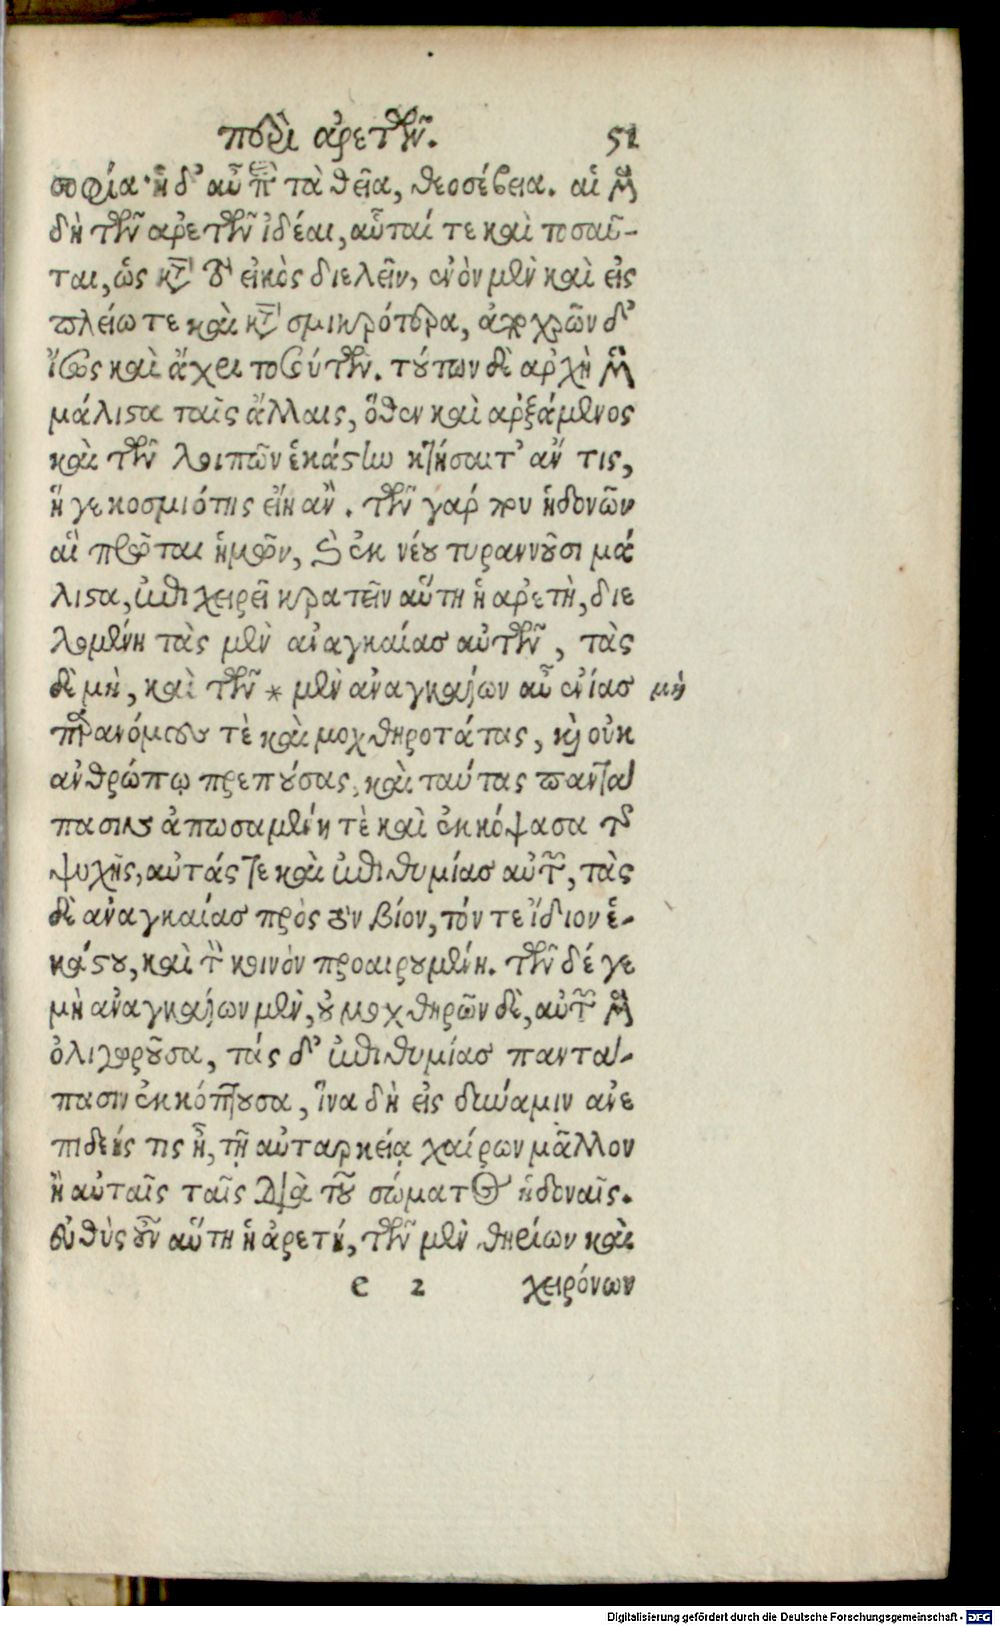 περὶ ἀρετῶν. 51
σοφία· ἡ δ᾽ αὖ περὶ τὰ θεῖα, θεοσέβεια. αἱ μὲν
δὴ τῶν ἀρετῶν ἰδέαι, αὗταί τε καὶ τοσαῦ-
ται, ὡς κατὰ τὸ εἰκὸς διελεῖν, ἐνὸν μὲν καὶ εἰς
πλείω τε καὶ κατὰ σμικρότερα, ἀποχρῶν δ᾽
ἴσως καὶ ἄχρι τοσούτων. τούτων δὲ ἀρχὴ μὲν
μάλιστα ταῖς ἄλλαις, ὅθεν καὶ ἀρξάμενος
καὶ τῶν λοιπῶν ἑκάστην κτήσαιτ᾽ ἄν τις,
ἥ γε κοσμιότης εἴη ἄν. τῶν γάρ που ἡδονῶν
αἳ πρῶται ἡμῶν, καὶ ἐκ νέου τυραννοῦσι μά
λιστα, ἐπιχειρεῖ κρατεῖν αὕτη ἡ ἀρετὴ, διε
λομένη τὰς μὲν ἀναγκαίας αὐτῶν, τὰς
δὲ μὴ, καὶ τῶν * μὲν ἀναγκαίων αὖ ἐνίας μὴ
παρανόμους τὲ καὶ μοχθηροτάτας, καὶ οὐκ
ἀνθρώπῳ πρεπούσας, καὶ ταύτας παντά
πασιν ἀπωσαμένη τὲ καὶ ἐκκόψασα τῆς
ψυχῆς, αὐτάς τε καὶ ἐπιθυμίας αὐτῶν, τὰς
δὲ ἀναγκαίας πρὸς τὸν βίον, τόν τε ἴδιον ἑ-
κάστου, καὶ τὸν κοινὸν προαιρουμένη. τῶν δέ γε
μὴ ἀναγκαίων μὲν, οὐ μοχθηρῶν δὲ, αὐτῶν μὲν
ὀλιγοροῦσα, τάς δ᾽ ἐπιθυμίας παντά-
πασιν ἐκκόπτουσα, ἵνα δὴ εἰς δύναμιν ἀνε
πιδεής τις ᾖ, τῇ αὐταρκείᾳ χαίρων μᾶλλον
ἢ αὐταῖς ταῖς διὰ τοῦ σώματος ἡδοναῖς.
εὐθὺς οὖν αὕτη ἡ ἀρετή, τῶν μὲν θηρίων καὶ
e 2 χειρόνων
Digitalisierung gefördert durch die Deutsche Forschungsgemeinschaft - DFG